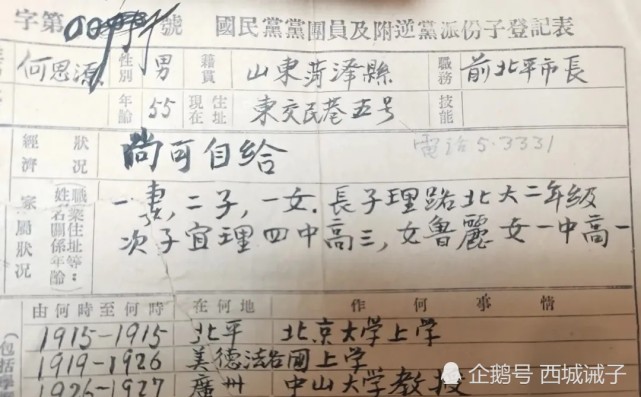 字第 號 國民黨黨團員及附逆黨派份子登記表
何思源 性別 男 籍貫 山東菏泽縣 職務 前北平市長
年齡 55 現在住址 東交民巷五号 技能
經濟狀况 尚可自给 電话5.3331
家屬狀况 (職業住址等:姓名關係年齡) 一妻,二子,一女.長子理路北大二年級
次子宜理四中高三,女魯麗女一中高一
由何時至何時 在何地 作何事情
1915-1915 北平 北京大学上学
1919-1926 美德法各國上学
1926-1927 廣州 中山大学教授
(包括學
企鹅号 西城诫子